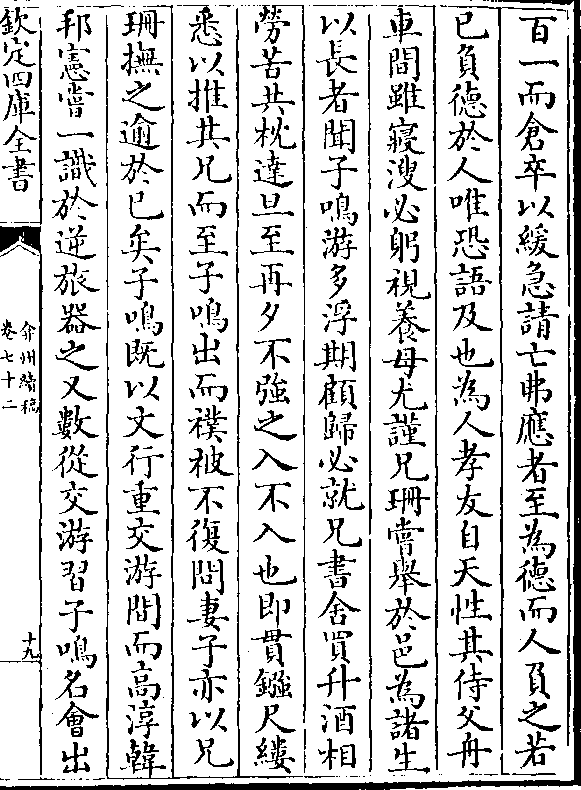 百一而倉卒以緩急請亡弗應者至為德而人負之若
已負德於人唯恐語及也為人孝友自天性其侍父舟
車間雖寢溲必躬視養母尤謹兄珊嘗舉於邑為諸生
以長者聞子鳴游多浮期顧歸必就兄書舍買升酒相
勞苦共枕達旦至再夕不強之入不入也即貫鏹尺縷
悉以推其兄而至子鳴出而襆被不復問妻子亦以兄
珊撫之逾於已矣子鳴既以文行重交游間而高淳韓
邦憲嘗一識於逆旅器之又數從交游習子鳴名會出
欽定四庫全書
弇州續稿
卷七十二
十九